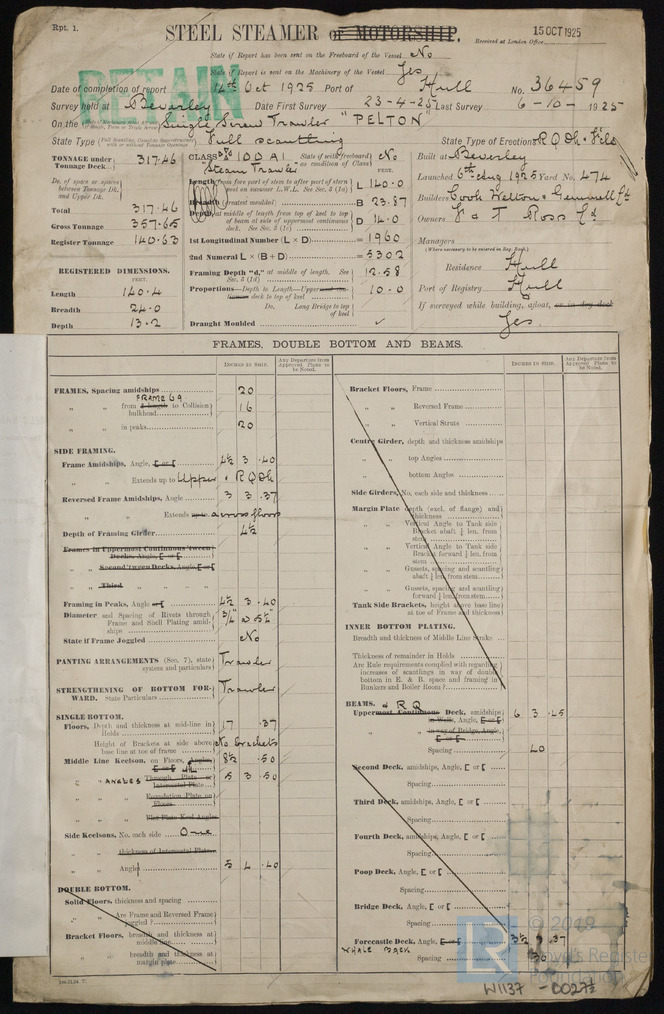 Rpt. 1.
STEEL STEAMER or MOTORSHIP.
15 OCT 1925
Received at London Office
State if Report has been sent on the Freeboard of the Vessel No
State if Report is sent on the Machinery of the Vessel Yes
RETAIN
Date of completion of report 14th Oct 1925 Port of Hull No. 36459
Survey held at Beverley Date First Survey 23-4-25 Last Survey 6-10-1925
On the Single Screw Trawler "PELTON"
State Type Full scantling State Type of Erections R.Q.Dk + F'cle
TONNAGE under Tonnage Deck 317.46
Do. of space or spaces between Tonnage Dk. and Upper Dk.
Total 317.46
Gross Tonnage 357.65
Register Tonnage 140.63
REGISTERED DIMENSIONS.
FEET.
Length 140.4
Breadth 24.0
Depth 13.2
CLASS 100A1 State if with freeboard as condition of Class No
Steam Trawler
FEET.
Length from fore part of stem to after part of stern post on summer L.W.L. See Sec. 3 (1a) L 140.0
Breadth (greatest moulded) B 23.87
Depth, at middle of length from top of keel to top of beam at side of uppermost continuous deck. See Sec. 3 (1c) D 14.0
1st Longitudinal Number (L × D) = 1960
2nd Numeral L × (B + D) = 5302
Framing Depth "d," at middle of length. See Sec. 3 (1d) 12.58
Proportions—Depth to Length—Upper deck to top of keel 10.0
Do. Long Bridge to top of keel
Draught Moulded
Built at Beverley
Launched 6th Aug 1925 Yard No. 474
Builders Cook Welton & Gemmell Ld
Owners T & T Ross Ld
Managers
(Where necessary to be entered in Reg. Book.)
Residence Hull
Port of Registry Hull
If surveyed while building, afloat, or in dry dock
Yes.
FRAMES, DOUBLE BOTTOM AND BEAMS.
INCHES IN SHIP.
Any Departure from Approved Plans to be Noted.
INCHES IN SHIP.
Any Departure from Approved Plans to be Noted.
FRAMES, Spacing amidships 20
FRAME 69
" " from to Collision bulkhead 16
" " in peaks 20
SIDE FRAMING.
Frame Amidships, Angle, [ or [ 4½ 3 .40
" " Extends up to Upper & RQDk
Reversed Frame Amidships, Angle 3 3 .37
" " Extends up to across floors
Depth of Framing Girder 4½
Frames in Uppermost Continuous 'tween Decks, Angle, [ or [
" " Second 'tween Decks, Angle, [ or [
" " Third " " " "
Framing in Peaks, Angle or [ 4½ 3 .40
Diameter and Spacing of Rivets through Frame and Shell Plating amidships 3/4" @ 5½"
State if Frame Joggled No
PANTING ARRANGEMENTS (Sec. 7), state system and particulars Trawler
STRENGTHENING OF BOTTOM FORWARD. State Particulars Trawler
SINGLE BOTTOM.
Floors, Depth and thickness at mid-line in Holds 17 .37
Height of Brackets at side above base line at toe of frame No brackets
Middle Line Keelson, on Floors, Angles, [ or [ 8½ .50
" " ANGLES Through Plate or Intercostal Plate 5 3 .50
" " Foundation Plate on Floors
" " Flat Plate Keel Angles
Side Keelsons, No. each side One
" " thickness of Intercostal Plates
" " Angles 5 4 .40
DOUBLE BOTTOM.
Solid Floors, thickness and spacing
" " Are Frame and Reversed Frame joggled?
Bracket Floors, breadth and thickness at middle line
" " breadth and thickness at margin plate
Bracket Floors, Frame
" " Reversed Frame
" " Vertical Struts
Centre Girder, depth and thickness amidships
" " top Angles
" " bottom Angles
Side Girders, No. each side and thickness
Margin Plate depth (excl. of flange) and thickness
" " Vertical Angle to Tank side Bracket abaft ¼ len. from stem
" " Vertical Angle to Tank side Bracket forward ¼ len. from stem
" " Gussets, spacing and scantling abaft ¼ len. from stem
" " Gussets, spacing and scantling forward ¼ len. from stem
Tank Side Brackets, height above base line at toe of Frame and thickness
INNER BOTTOM PLATING.
Breadth and thickness of Middle Line Strake
Thickness of remainder in Holds
Are Rule requirements complied with regarding increases of scantlings in way of double bottom in E. & B. space and framing in Bunkers and Boiler Room?
BEAMS. & RQ
Uppermost Continuous Deck, amidships in Wells, Angle, [ or [ 6 3 .45
" " in way of Bridge, Angle, [ or [
Spacing 40
Second Deck, amidships, Angle, [ or [
Spacing
Third Deck, amidships, Angle, [ or [
Spacing
Fourth Deck, amidships, Angle, [ or [
Spacing
Poop Deck, Angle, [ or [
Spacing
Bridge Deck, Angle, [ or [
Spacing
Forecastle Deck, Angle, [ or [ .37
WHALE BACK Spacing
© 2019
Lloyd's Register
Foundation
LR
W1137 - 0027½